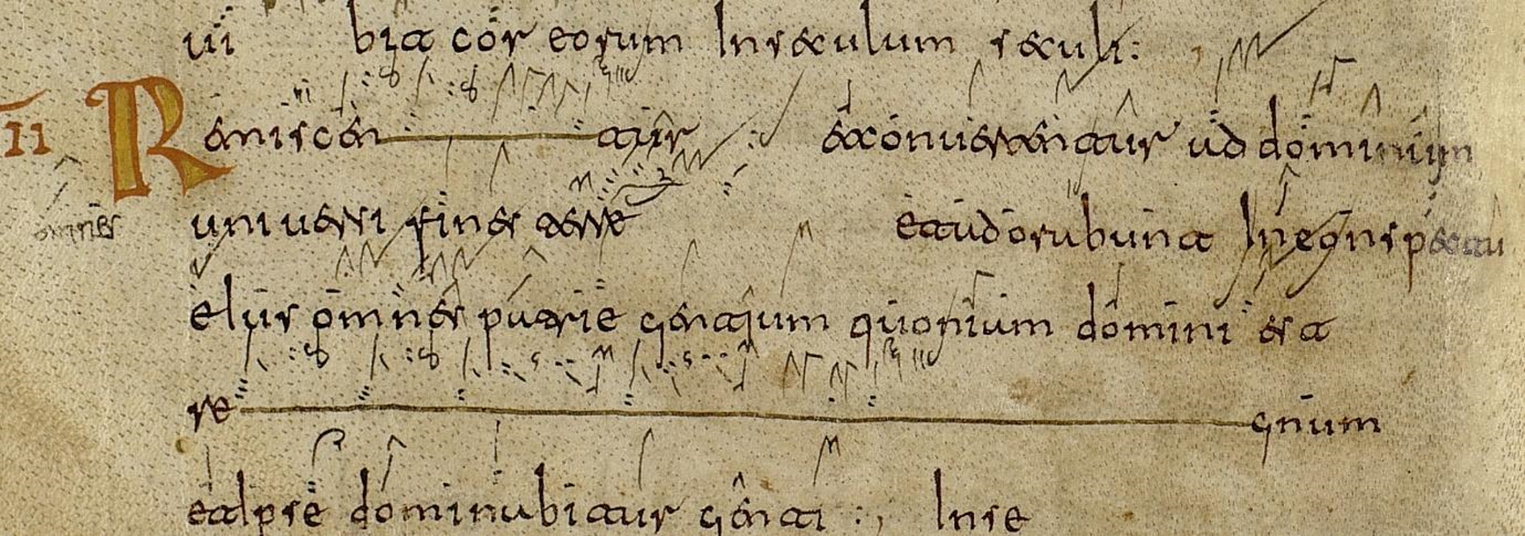 ui bit cor eorum In seculum seculi :
II Reminiscen tur : et conuertentur ad dominum
omnes uniuersi fines terre et adorabunt In conspectu
eius omnes patrie gentium quoniam domini est
re gnum
et Ipse dominabitur genti : , In se